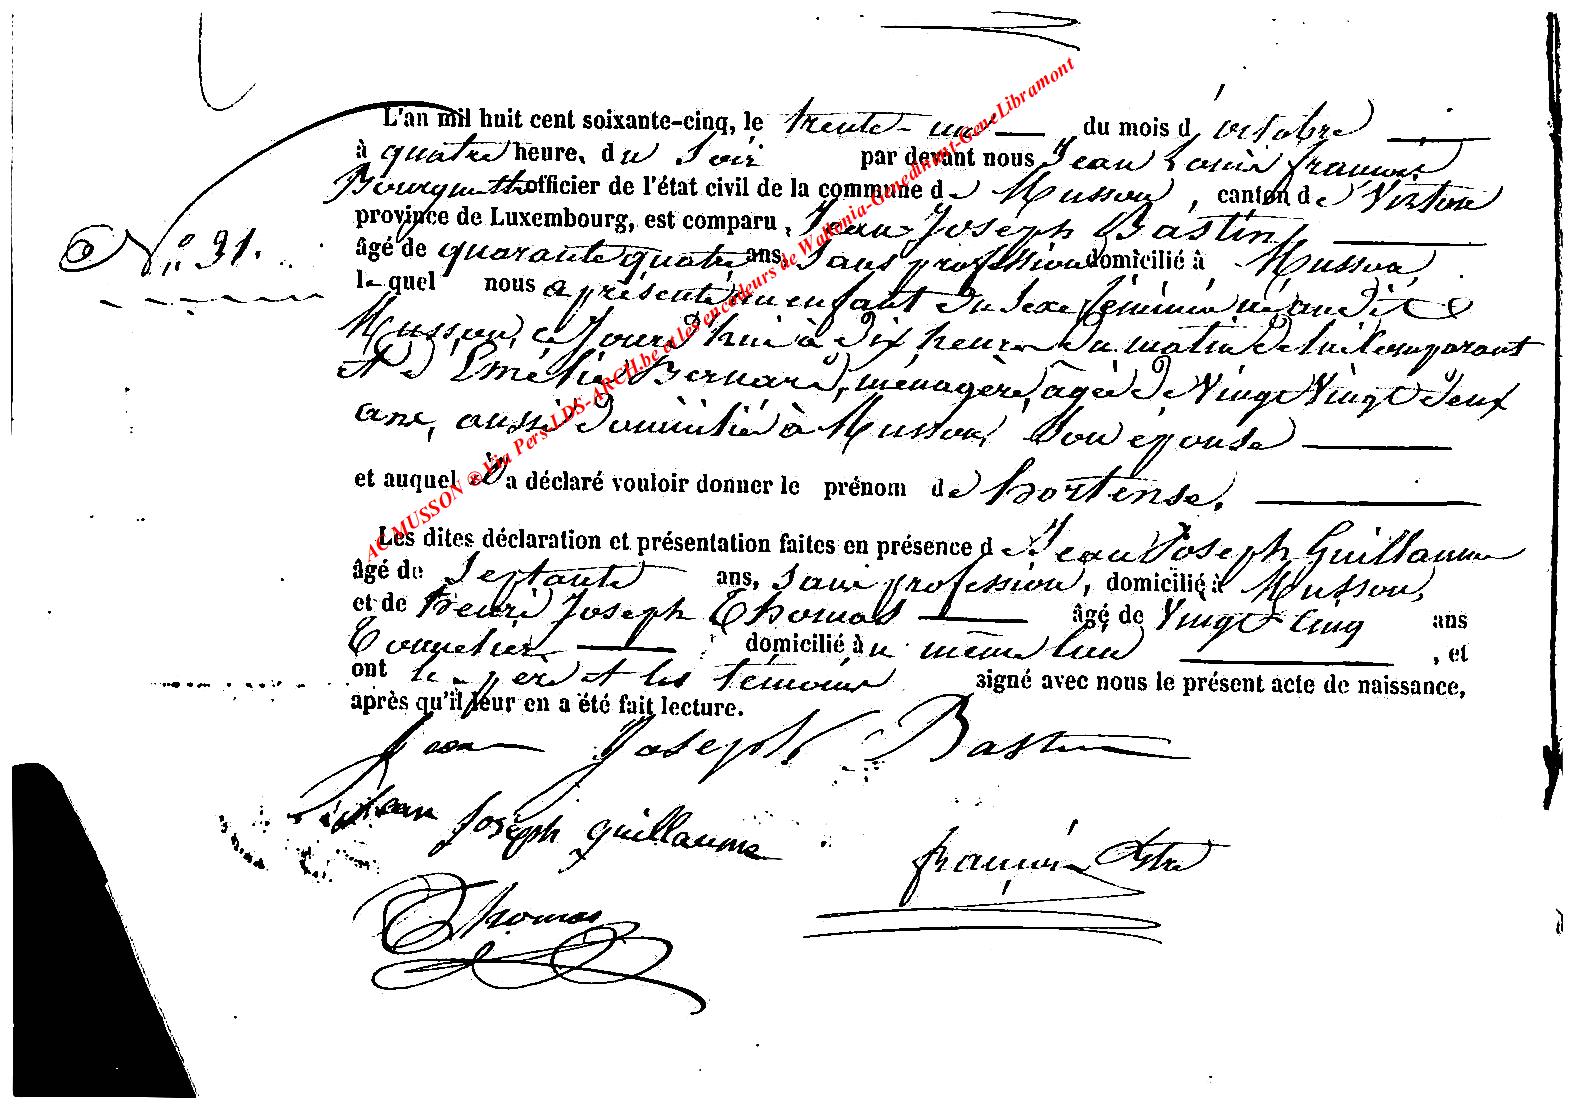 L'an mil huit cent soixante-cinq, le trente-un du mois d'octobre
à quatre heure, du soir par devant nous Jean Louis François
officier de l'état civil de la commune de Musson, canton de Virton
province de Luxembourg, est comparu, Jean Joseph Bastin
N° 31.
âgé de quarante quatre ans, sans profession domicilié à Musson,
lequel nous a présenté un enfant du sexe féminin né au dit
Musson, ce jourd'hui à dix heure du matin de lui Comparant
et d'Emélie Bernard, ménagère, âgée de Vingt Vingt deux
ans, aussi domiciliée à Musson, son épouse
et auquel il a déclaré vouloir donner le prénom de hortense.
Les dites déclaration et présentation faites en présence de Jean Joseph Guillaume
âgé de septante ans, sans profession, domicilié à Musson,
et de henri Joseph Thomas âgé de Vingt Cinq ans
domicilié au même lieu, et
ont le père et les témoins signé avec nous le présent acte de naissance,
après qu'il leur en a été fait lecture.
Jean Joseph Bastin
Jean Joseph guillaume
françois
Thomas
AC MUSSON ® Via Pers-LDS-ARCH.be et les encodeurs de Wallonia-Genedinant-GeneLibramont